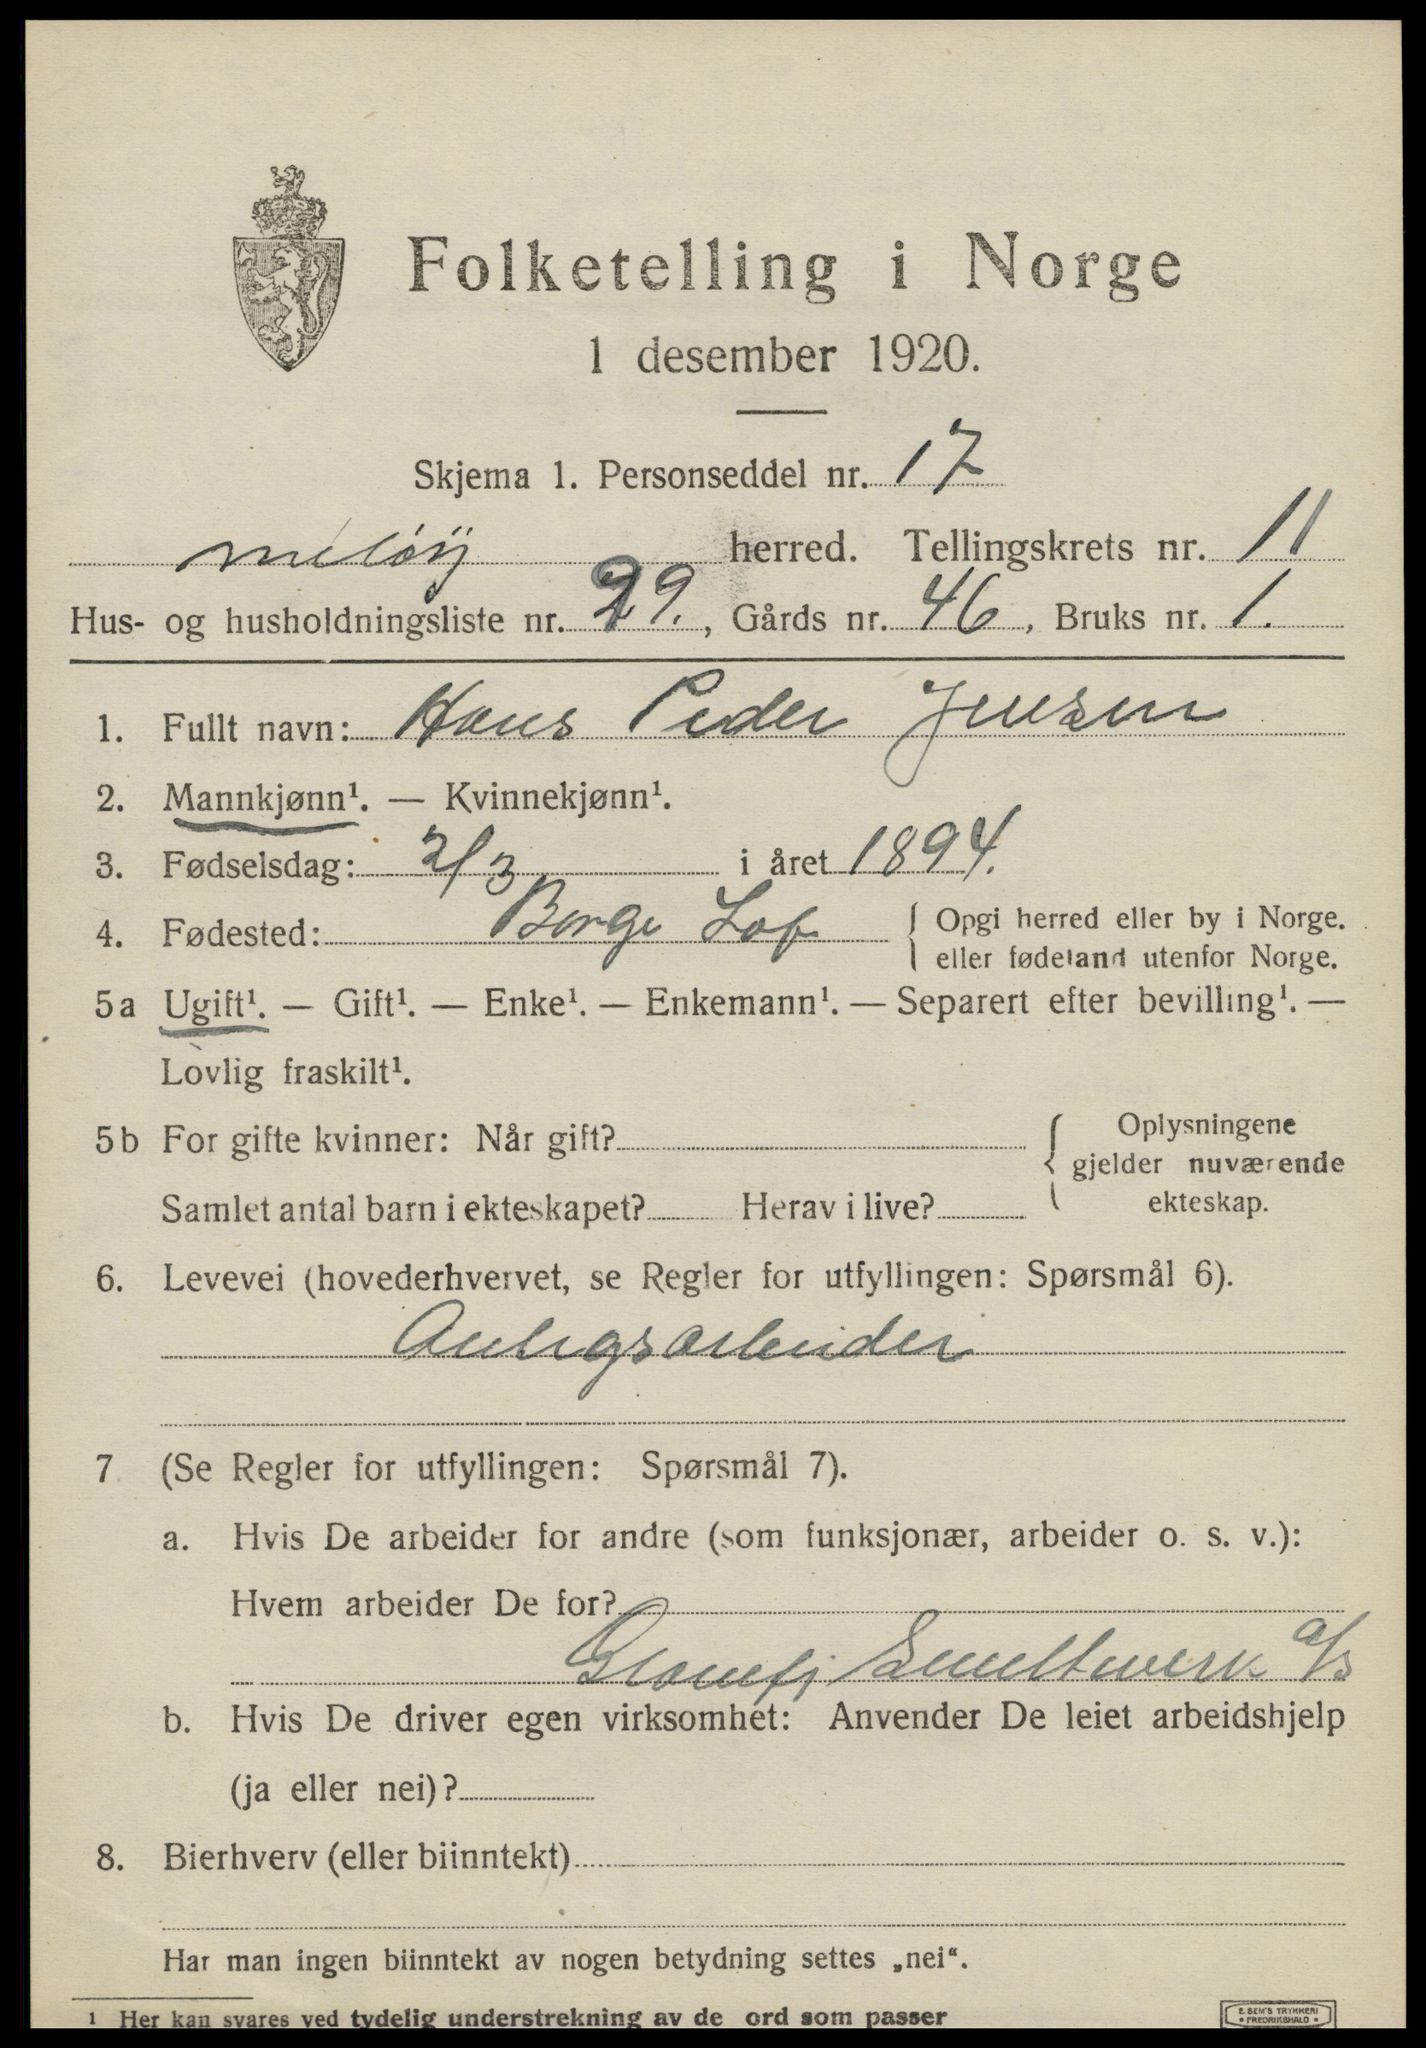 Folketelling i Norge
1 desember 1920.
Skjema 1. Personseddel nr. 17
Meløy herred. Tellingskrets nr. 11
Hus- og husholdningsliste nr. 29., Gårds nr. 46, Bruks nr. 1.
1. Fullt navn: Hans Peder Jensen
2. Mannkjønn¹. — Kvinnekjønn¹.
3. Fødselsdag: 2/3 i året 1894.
4. Fødested: Borge Lof { Opgi herred eller by i Norge.
eller fødeland utenfor Norge.
5a Ugift¹. — Gift¹. — Enke¹. — Enkemann¹. — Separert efter bevilling¹. —
Lovlig fraskilt¹.
5b For gifte kvinner: Når gift? { Oplysningene
gjelder nuværende
Samlet antal barn i ekteskapet? Herav i live? ekteskap.
6. Levevei (hovederhvervet, se Regler for utfyllingen: Spørsmål 6).
Anlegsarbeider
7 (Se Regler for utfyllingen: Spørsmål 7).
a. Hvis De arbeider for andre (som funksjonær, arbeider o. s. v.):
Hvem arbeider De for?
Glomfj Smeltverk a/s
b. Hvis De driver egen virksomhet: Anvender De leiet arbeidshjelp
(ja eller nei)?
8. Bierhverv (eller biinntekt)
Har man ingen biinntekt av nogen betydning settes „nei“.
1 Her kan svares ved tydelig understrekning av de ord som passer
E. SEM'S TRYKKERI
FREDRIKSHALD